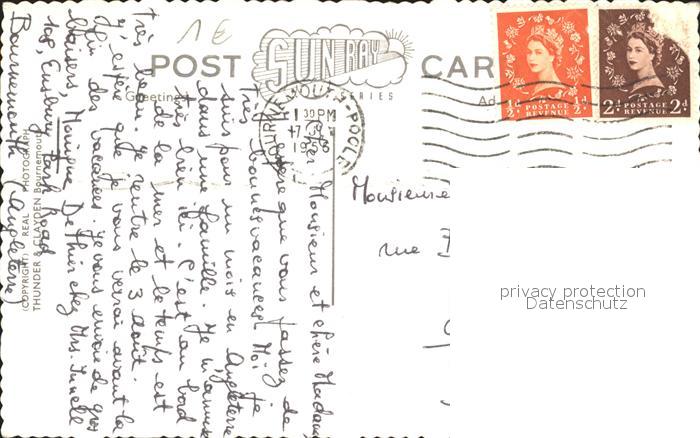 1 €
POST CARD
SUN RAY
SERIES
Greetings
Ad
BOURNEMOUTH-POOLE
1 30 PM
½ᵈ POSTAGE REVENUE ½ᵈ
2ᵈ POSTAGE REVENUE 2ᵈ
Cher Monsieur et chère Madame
J'espère que vous passez de
très bonnes vacances. Moi, je
suis pour un mois en Angleterre
dans une famille. Je m'amuse
très bien ici. C'est au bord
de la mer et le temps est
très beau. Je rentre le 3 août.
J'espère que je vous verrai avant la
fin des vacances. Je vous envoie de gros
baisers. Monique
chez Mrs.
108, Ensbury Park Road
Bournemouth (Angleterre)
Monsieur e
rue
(COPYRIGHT) REAL PHOTOGRAPH
THUNDER & CLAYDEN Bournemouth
privacy protection
Datenschutz